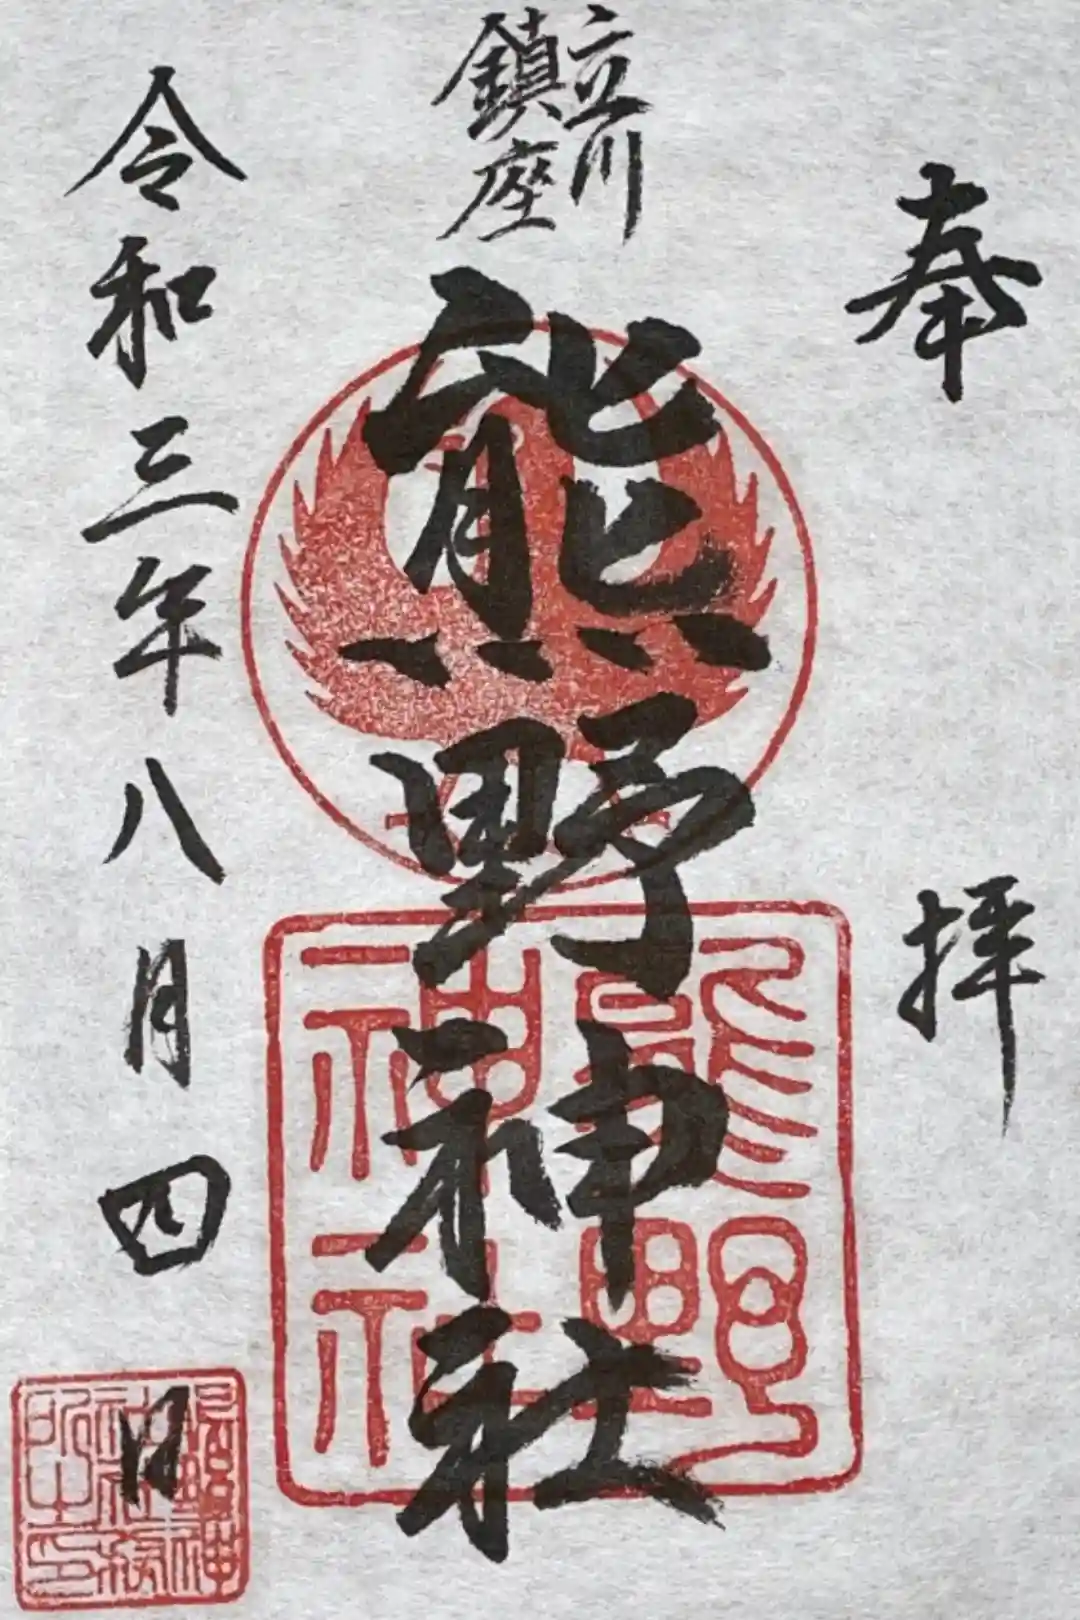 奉拝
立川
鎮座
熊野神社
令和三年八月四日
熊野
神社